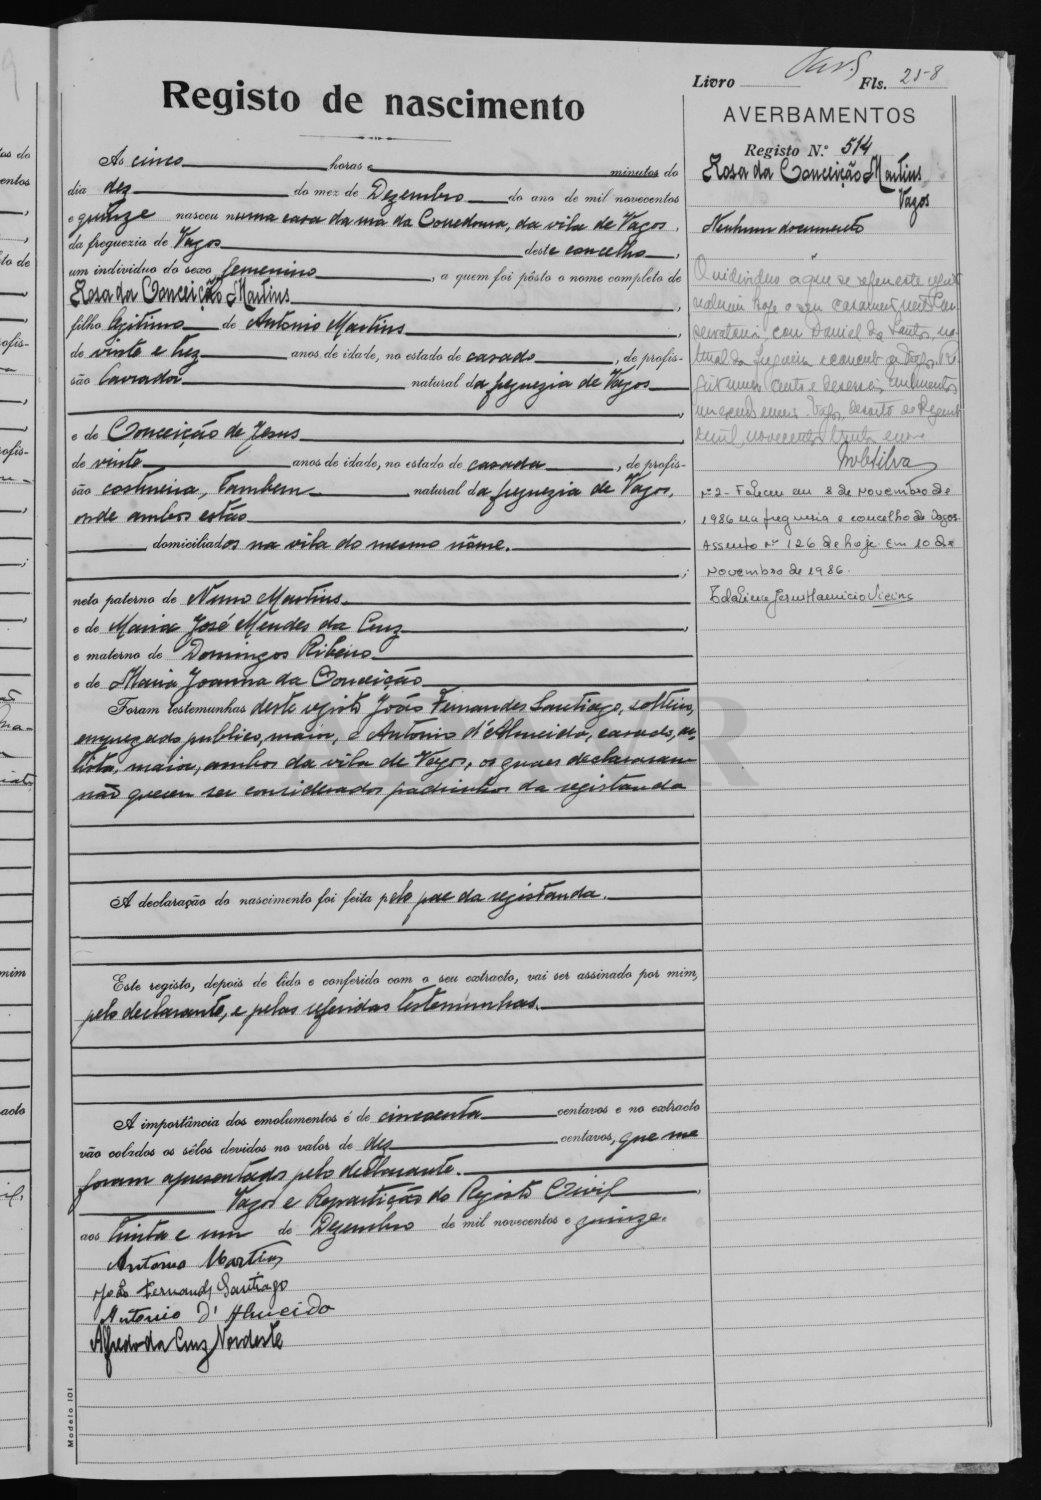 Livro Fls. 258
Registo de nascimento
As cinco horas e minutos do
dia dez do mez de Dezembro do ano de mil novecentos
e quinze nasceu numa casa da rua da Corredoura, da vila de Vagos,
da freguezia de Vagos deste concelho,
um individuo do sexo femenino, a quem foi pôsto o nome completo de
Rosa da Conceição Martins,
filho legitimo de Antonio Martins,
de vinte e trez anos de idade, no estado de casado, de profis-
são lavrador natural da freguezia de Vagos
,
e de Conceição de Jesus,
de vinte anos de idade, no estado de casada, de profis-
são costureira, tambem natural da freguezia de Vagos,
onde ambos estão,
domiciliados na vila do mesmo nome.
;
neto paterno de Nuno Martins
e de Maria José Mendes da Cruz,
e materno de Domingos Ribeiro
e de Maria Joanna da Conceição
Foram testemunhas deste registo João Fernandes Santiago, solteiro,
empregado publico, maior, e Antonio d'Almeida, casado, ar-
tista, maior, ambos da vila de Vagos, os quaes declararam
não querem ser considerados padrinhos da registanda
A declaração do nascimento foi feita pelo pae da registanda.
Este registo, depois de lido e conferido com o seu extracto, vai ser assinado por mim,
pelo declarante, e pelas referidas testemunhas.
A importância dos emolumentos é de cincoenta centavos e no extracto
vão colados os sêlos devidos no valor de dez centavos, que me
foram apresentados pelo declarante.
Vagos e Repartição do Registo Civil,
aos trinta e um de Dezembro de mil novecentos e quinze.
Antonio Martins
João Fernandes Santiago
Antonio D'Almeida
Alfredo da Cruz Nordeste
Modelo 101
AVERBAMENTOS
Registo N.º 514
Rosa da Conceição Martins
Vagos
Nenhum documento
O individuo a que se refere este
hoje o seu casamento nesta Con-
servatoria, com Daniel dos Santos, na-
tural da freguesia e concelho de Vagos.
Vagos, dezoito de
de mil novecentos trinta e
Silva
Nº 2 - Faleceu em 8 de Novembro de
1986 na freguesia e concelho de Vagos.
Assento nº 126 de hoje. Em 10 de
Novembro de 1986.